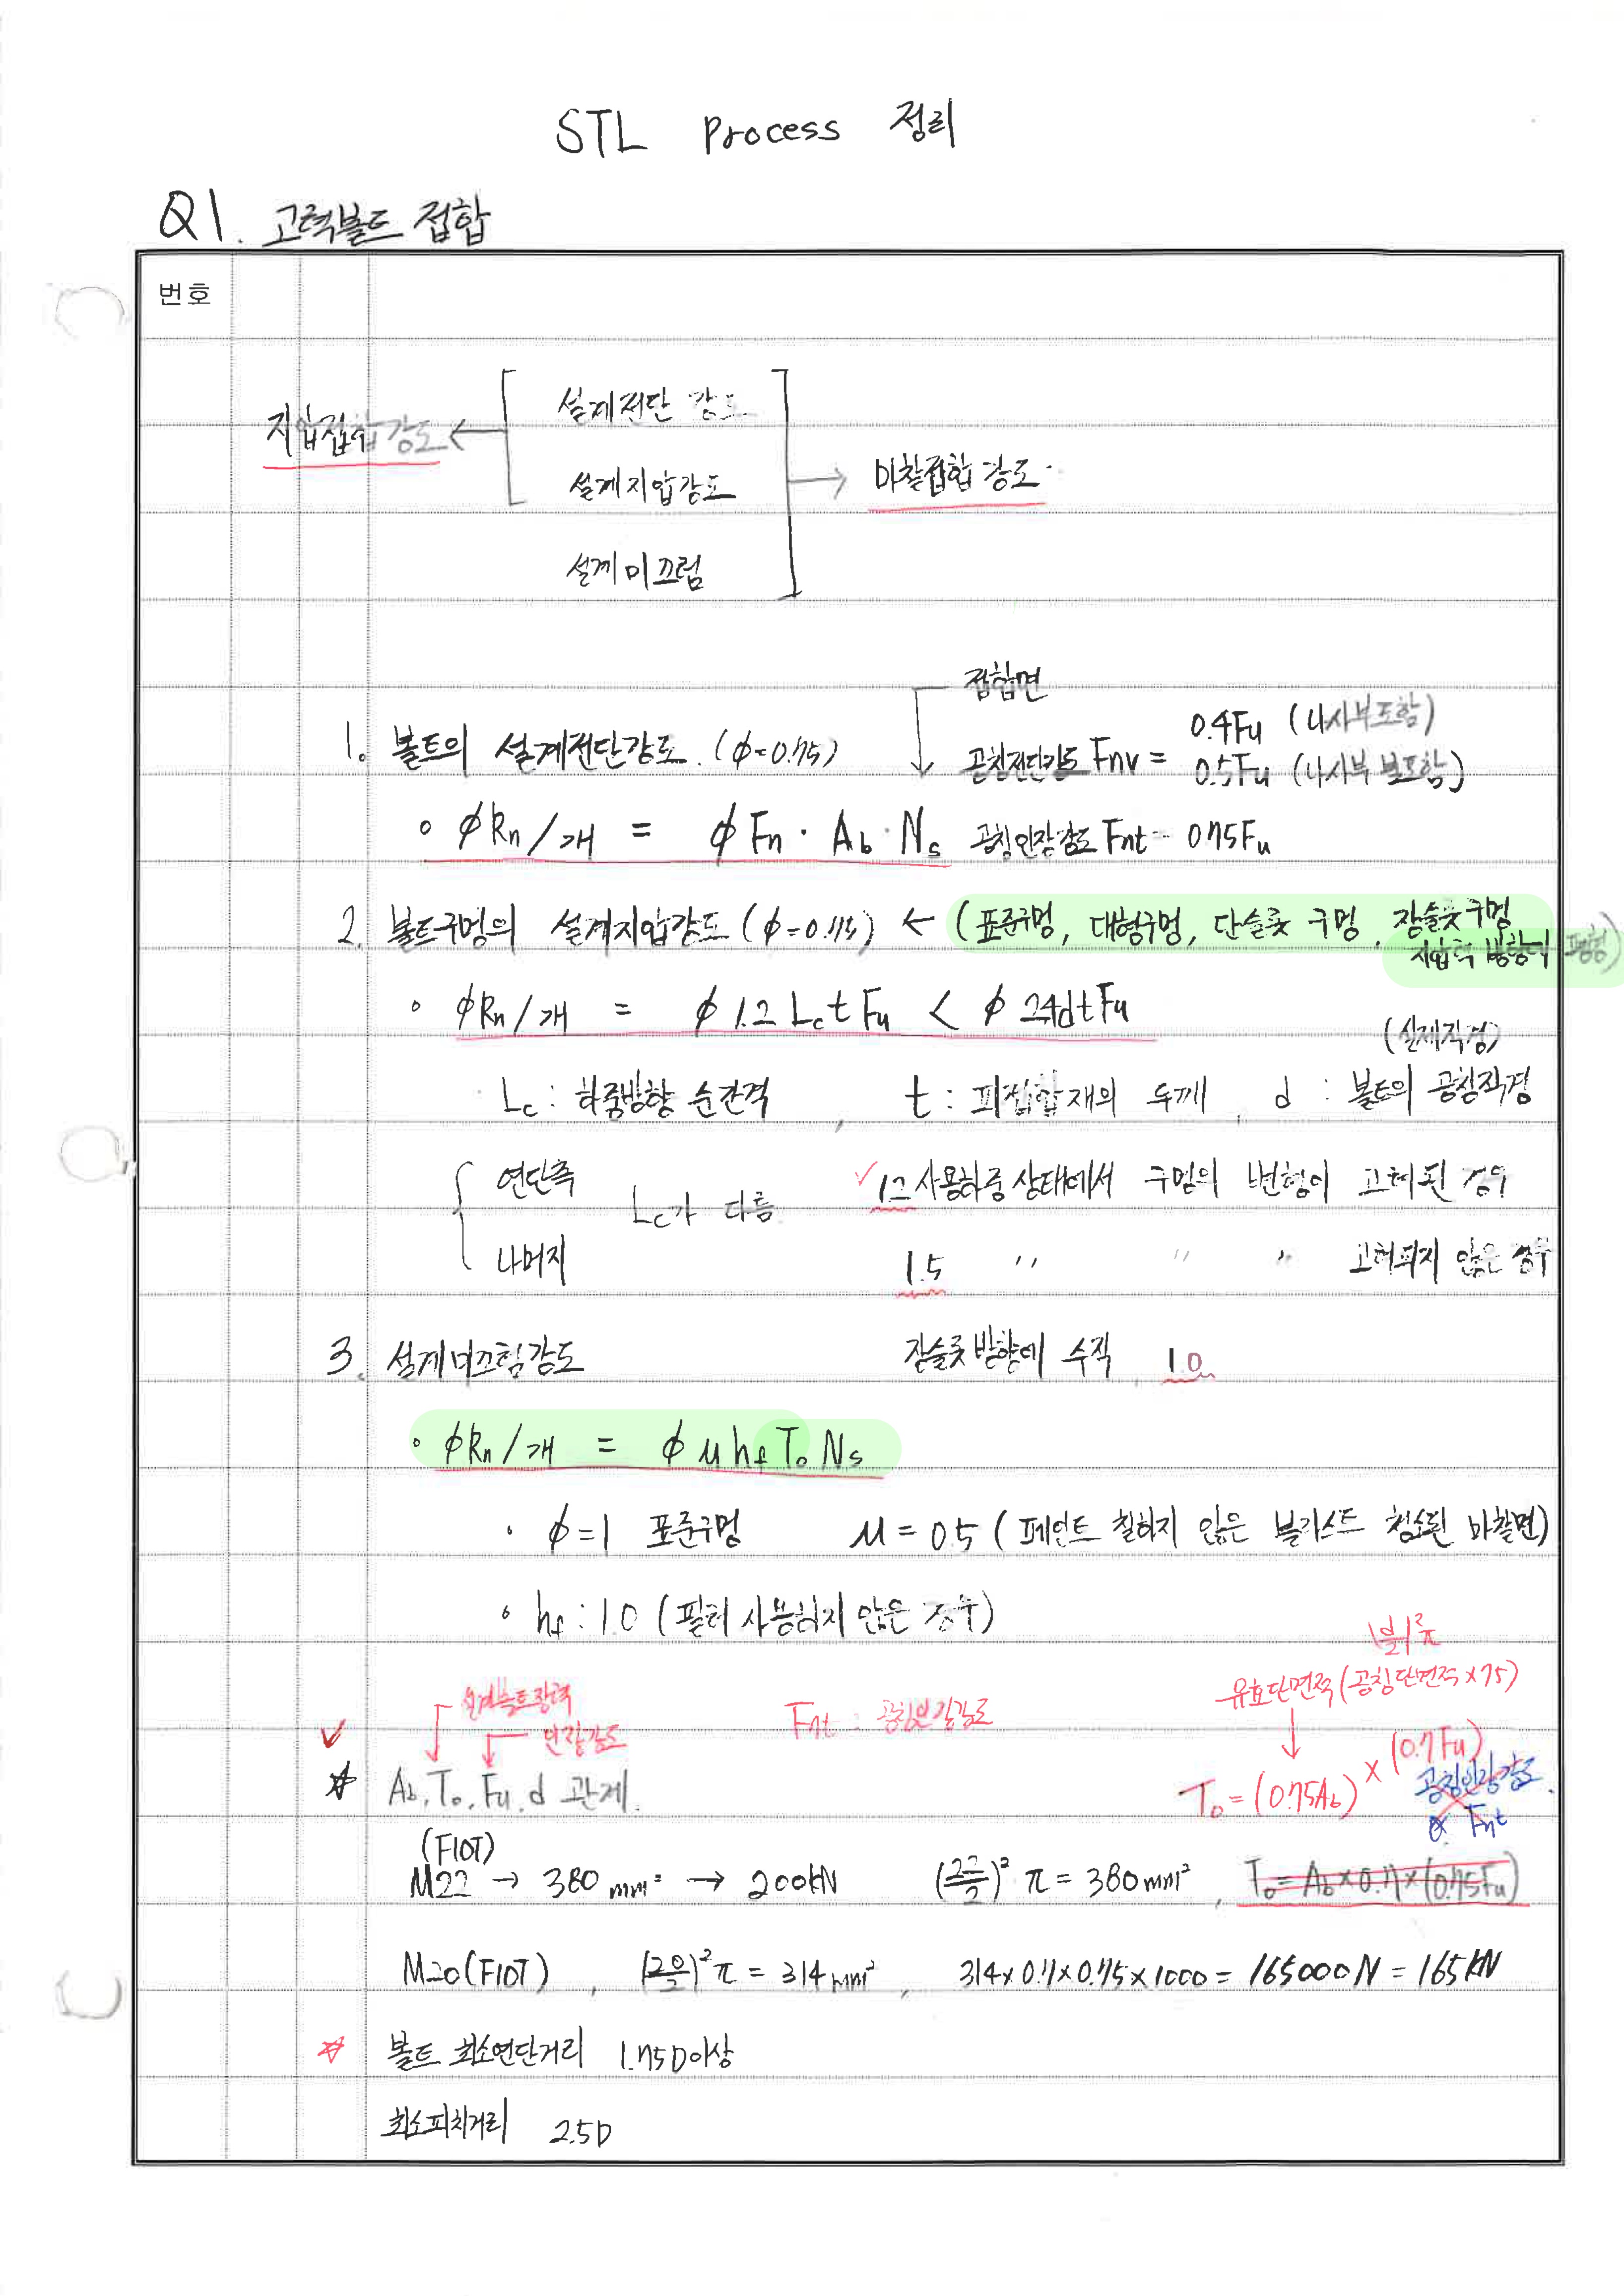 STL Process 정리
Q1. 고력볼트 접합
번호
지압접합강도 ← 설계전단 강도
설계지압강도 → 마찰접합 강도
설계미끄럼
접합면
1. 볼트의 설계전단강도. (ϕ=0.75) 공칭전단강도 Fnv = 0.4Fu (나사부포함)
0.5Fu (나사부 불포함)
∘ ϕRn/개 = ϕ Fn · Ab · Ns 공칭인장강도 Fnt = 0.75Fu
2. 볼트구멍의 설계지압강도 (ϕ=0.75) ← (표준구멍, 대형구멍, 단슬롯 구멍, 장슬롯구멍
지압력 방향이 평행)
∘ ϕRn/개 = ϕ 1.2 Lc t Fu < ϕ 2.4dtFu
(실제직경)
Lc : 하중방향 순간격 , t : 피접합재의 두께 , d : 볼트의 공칭직경
연단측 Lc가 다름 ✓1.2 사용하중 상태에서 구멍의 변형이 고려된 경우
나머지 1.5 〃 〃 〃 고려되지 않은 경우
3. 설계미끄럼강도 장슬롯방향에 수직 1.0
∘ ϕRn/개 = ϕ μ hf To Ns
· ϕ=1 표준구멍 μ = 0.5 (페인트 칠하지 않은 블라스트 청소된 마찰면)
∘ hf : 1.0 (필러 사용하지 않은 경우)
유효단면적 (공칭단면적 ×75)
설계볼트장력
인장강도 Fnt : 공칭인장강도
✓
☆ Ab, To, Fu, d 관계. To = (0.75Ab) × (0.7Fu)
공칭인장강도
Fnt
(F10T)
M22 → 380 mm² → 200kN (22/2)² π = 380mm² , To = Ab × 0.7 × (0.75Fu)
M20(F10T) , (20/2)² π = 314mm² , 314×0.7×0.75×1000 = 165000N = 165kN
☆ 볼트 최소연단거리 1.75D이상
최소피치거리 2.5D